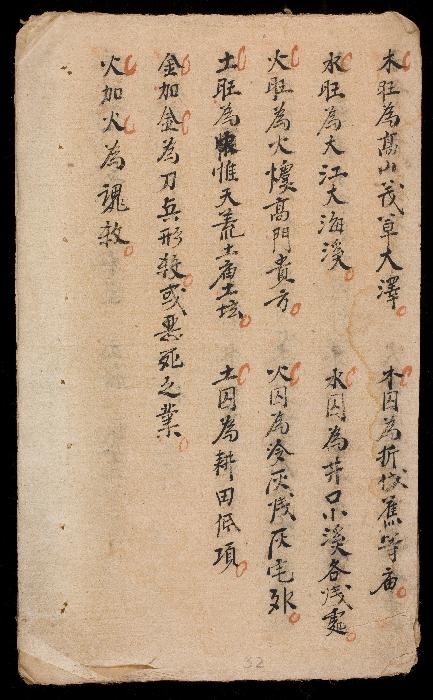 木旺為高山茂草大澤 木囚為折伐蕉等庙
水旺為大江大海溪 水囚為井口小溪各浅處
火旺為火樓高門貴方 火囚為冷灰浅灰宅外
土旺為惟天荒土庙土坛 土囚為耕田低項
金加金為刀兵形殺或悪死之業
火加火為魂殺
32